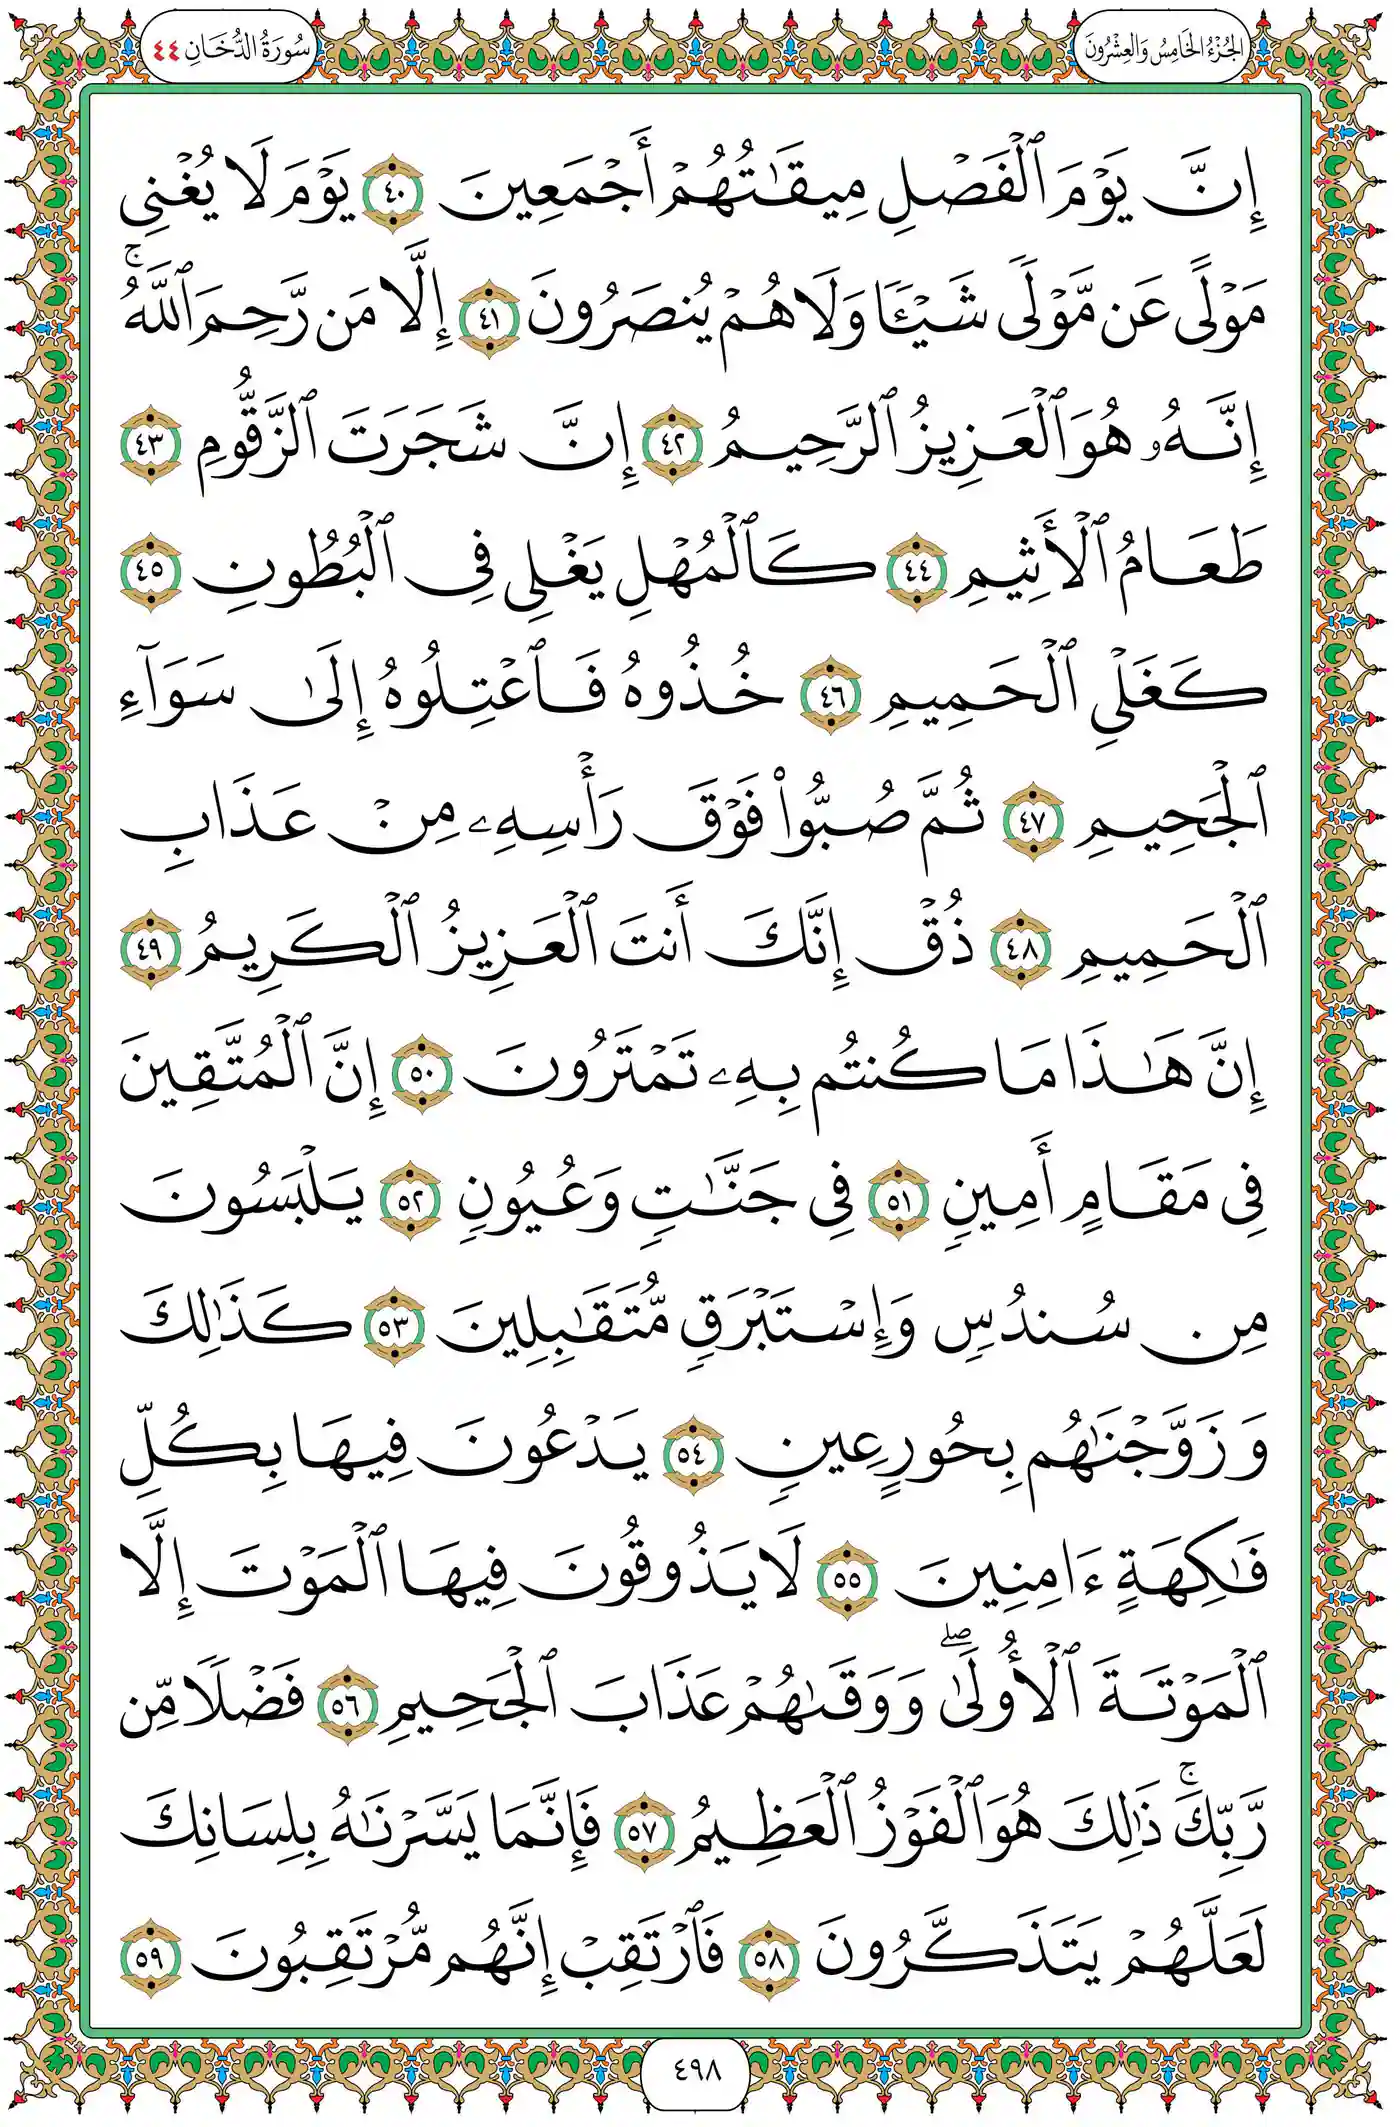 الجُزْءُ الخَامِسُ وَالعِشْرُونَ
سُورَةُ الدُّخَانِ ٤٤
إِنَّ يَوْمَ ٱلْفَصْلِ مِيقَـٰتُهُمْ أَجْمَعِينَ ٤٠ يَوْمَ لَا يُغْنِى
مَوْلًى عَن مَّوْلًى شَيْـًٔا وَلَا هُمْ يُنصَرُونَ ٤١ إِلَّا مَن رَّحِمَ ٱللَّهُ ۚ
إِنَّهُۥ هُوَ ٱلْعَزِيزُ ٱلرَّحِيمُ ٤٢ إِنَّ شَجَرَتَ ٱلزَّقُّومِ ٤٣
طَعَامُ ٱلْأَثِيمِ ٤٤ كَٱلْمُهْلِ يَغْلِى فِى ٱلْبُطُونِ ٤٥
كَغَلْىِ ٱلْحَمِيمِ ٤٦ خُذُوهُ فَٱعْتِلُوهُ إِلَىٰ سَوَآءِ
ٱلْجَحِيمِ ٤٧ ثُمَّ صُبُّوا۟ فَوْقَ رَأْسِهِۦ مِنْ عَذَابِ
ٱلْحَمِيمِ ٤٨ ذُقْ إِنَّكَ أَنتَ ٱلْعَزِيزُ ٱلْكَرِيمُ ٤٩
إِنَّ هَـٰذَا مَا كُنتُم بِهِۦ تَمْتَرُونَ ٥٠ إِنَّ ٱلْمُتَّقِينَ
فِى مَقَامٍ أَمِينٍ ٥١ فِى جَنَّـٰتٍ وَعُيُونٍ ٥٢ يَلْبَسُونَ
مِن سُندُسٍ وَإِسْتَبْرَقٍ مُّتَقَـٰبِلِينَ ٥٣ كَذَٰلِكَ
وَزَوَّجْنَـٰهُم بِحُورٍ عِينٍ ٥٤ يَدْعُونَ فِيهَا بِكُلِّ
فَـٰكِهَةٍ ءَامِنِينَ ٥٥ لَا يَذُوقُونَ فِيهَا ٱلْمَوْتَ إِلَّا
ٱلْمَوْتَةَ ٱلْأُولَىٰ ۖ وَوَقَىٰهُمْ عَذَابَ ٱلْجَحِيمِ ٥٦ فَضْلًا مِّن
رَّبِّكَ ۚ ذَٰلِكَ هُوَ ٱلْفَوْزُ ٱلْعَظِيمُ ٥٧ فَإِنَّمَا يَسَّرْنَـٰهُ بِلِسَانِكَ
لَعَلَّهُمْ يَتَذَكَّرُونَ ٥٨ فَٱرْتَقِبْ إِنَّهُم مُّرْتَقِبُونَ ٥٩
٤٩٨